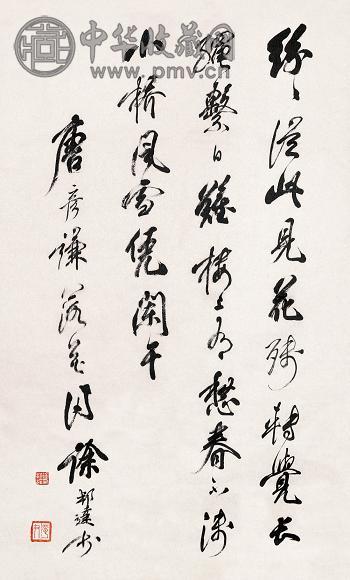 中华收藏网
www.pmv.cn
紛〻從此見花殘轉覺長
繩繫日難樓上有愁春不淺
小橋風雪凭闌干
唐彥謙落花 徐邦達書